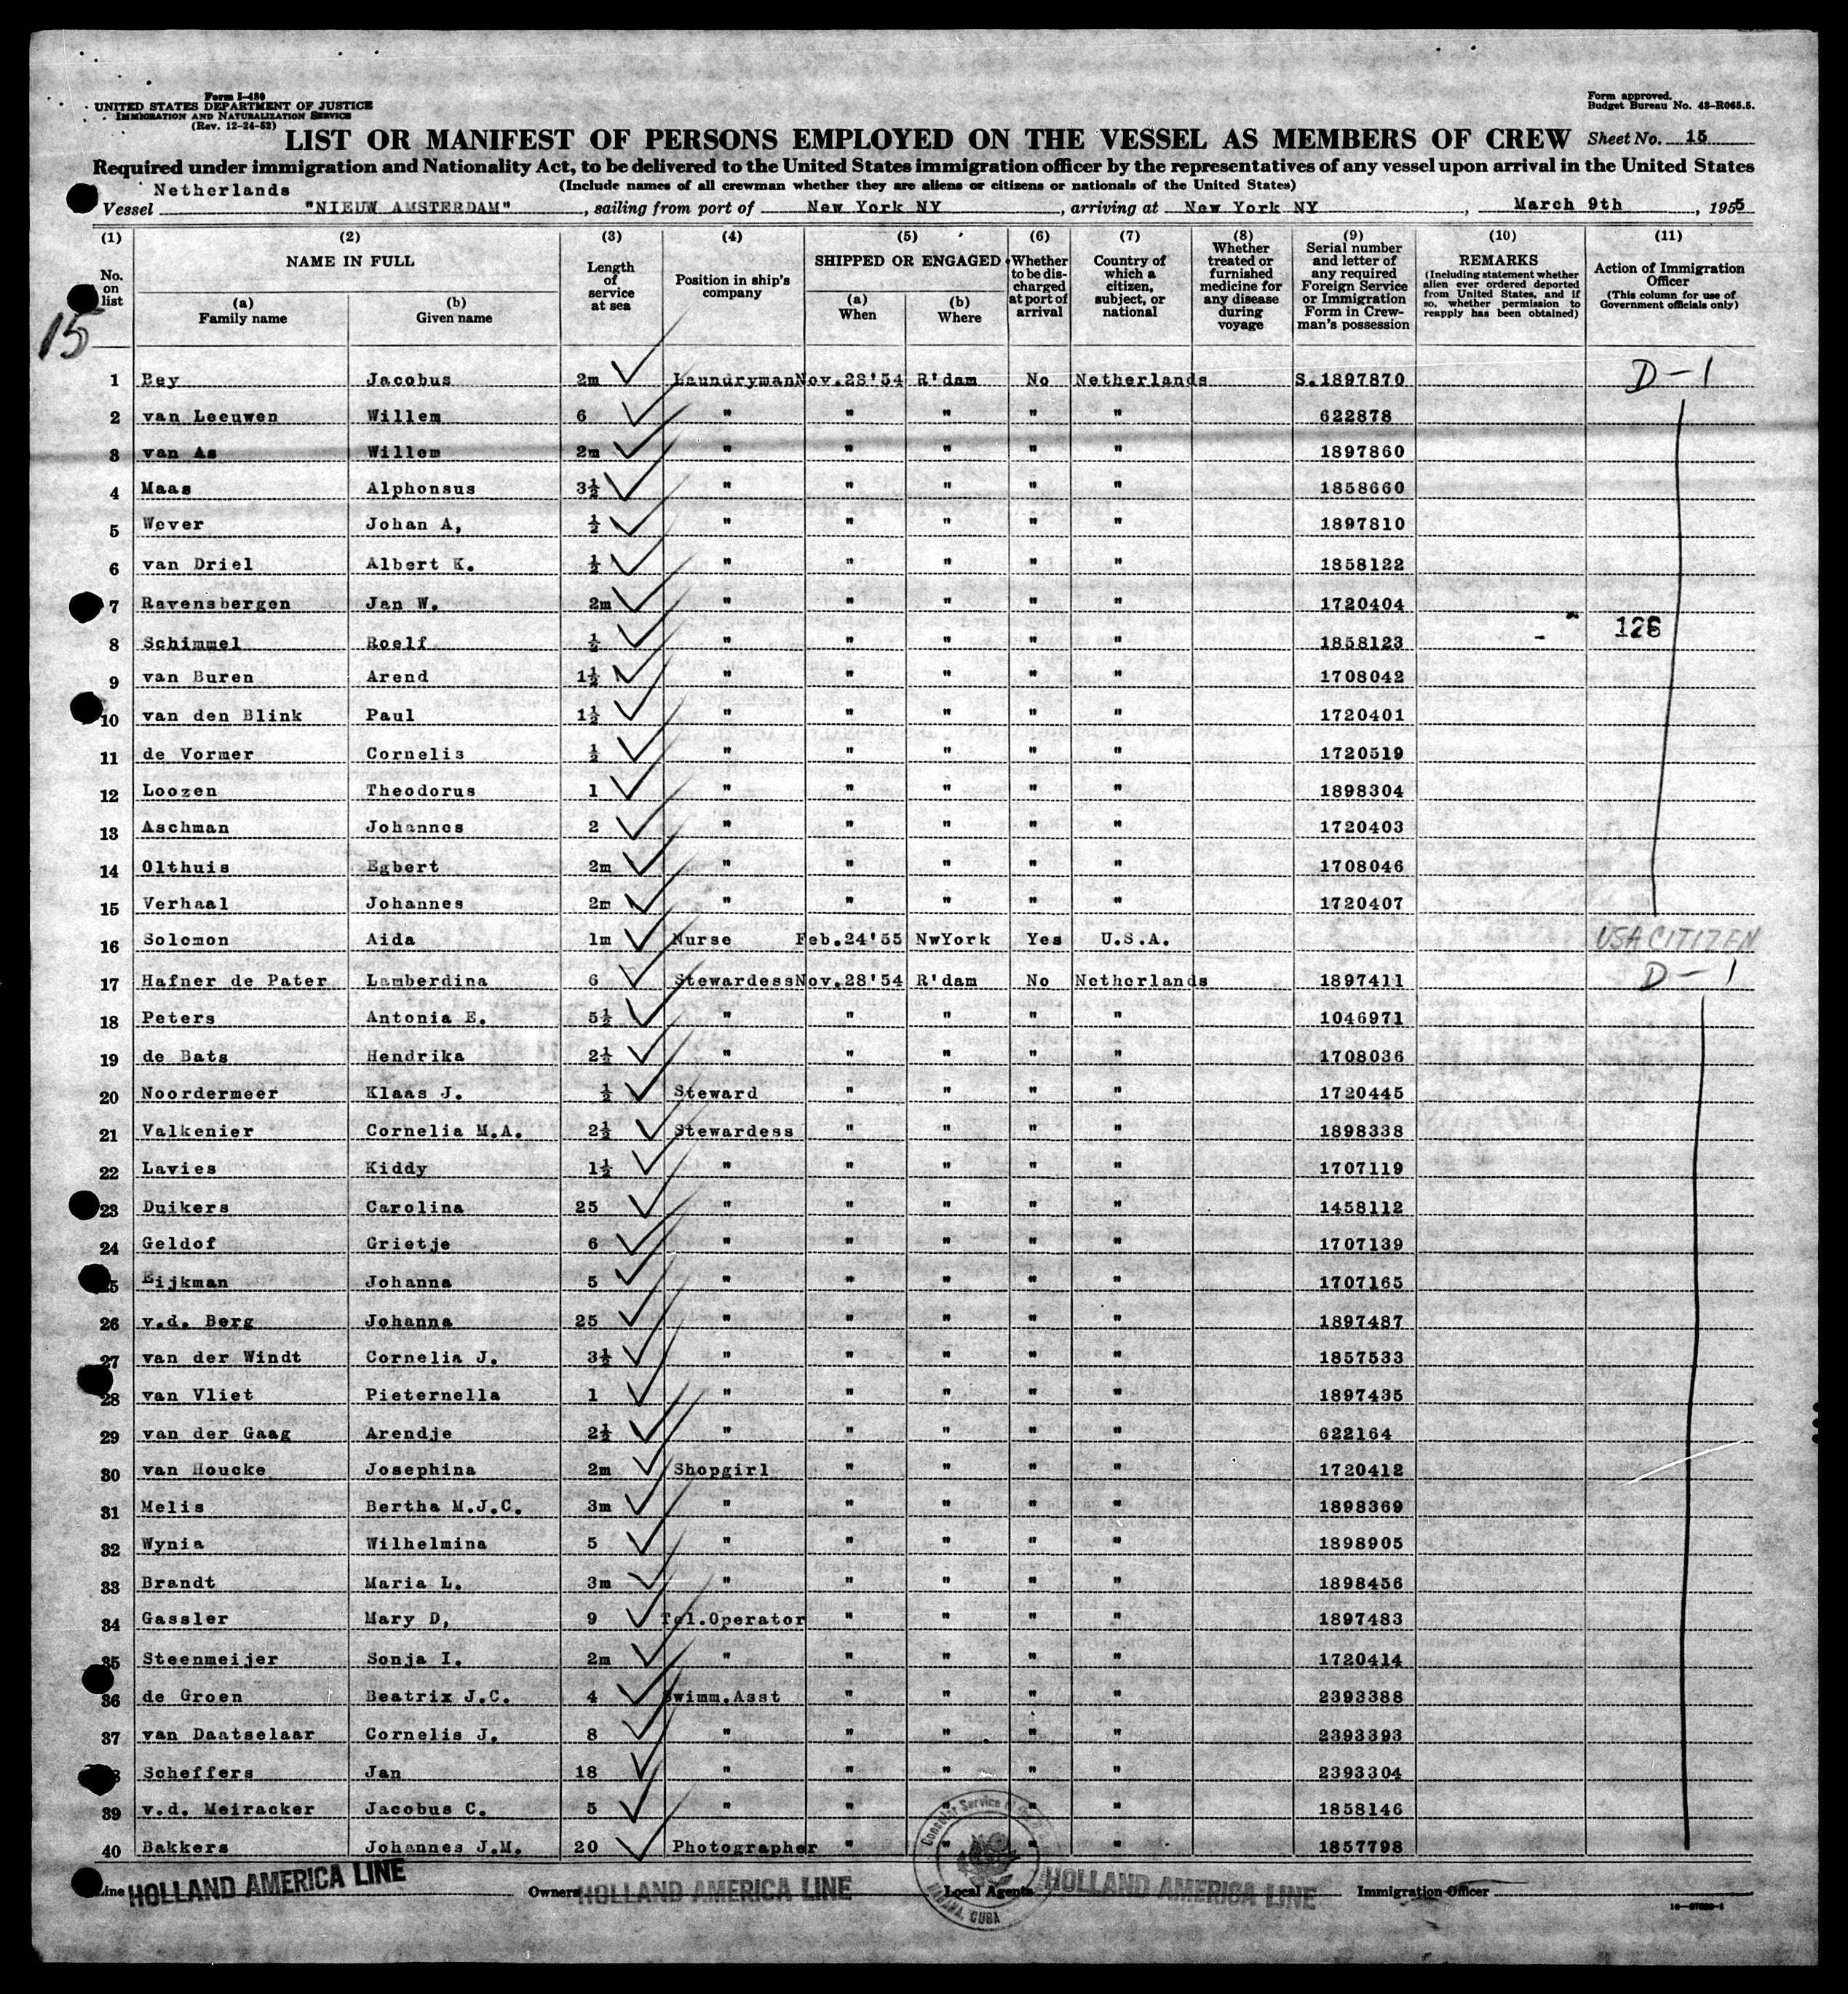 Form I-480
UNITED STATES DEPARTMENT OF JUSTICE
IMMIGRATION AND NATURALIZATION SERVICE
(Rev. 12-24-52)
Form approved.
Budget Bureau No. 43-R065.5.
LIST OR MANIFEST OF PERSONS EMPLOYED ON THE VESSEL AS MEMBERS OF CREW Sheet No. 15
Required under immigration and Nationality Act, to be delivered to the United States immigration officer by the representatives of any vessel upon arrival in the United States
(Include names of all crewman whether they are aliens or citizens or nationals of the United States)
Netherlands
Vessel "NIEUW AMSTERDAM", sailing from port of New York NY, arriving at New York NY, March 9th, 1955
(1) (2) (3) (4) (5) (6) (7) (8) (9) (10) (11)
No. on list
NAME IN FULL
(a) Family name
(b) Given name
Length of service at sea
Position in ship's company
SHIPPED OR ENGAGED
(a) When
(b) Where
Whether to be discharged at port of arrival
Country of which a citizen, subject, or national
Whether treated or furnished medicine for any disease during voyage
Serial number and letter of any required Foreign Service or Immigration Form in Crewman's possession
REMARKS
(Including statement whether alien ever ordered deported from United States, and if so, whether permission to reapply has been obtained)
Action of Immigration Officer
(This column for use of Government officials only)
15
1 Bey Jacobus 2m Laundryman Nov.28'54 R'dam No Netherlands S.1897870 D-1
2 van Leeuwen Willem 6 " " " " " 622878
3 van As Willem 2m " " " " " 1897860
4 Maas Alphonsus 3½ " " " " " 1858660
5 Wever Johan A, ½ " " " " " 1897810
6 van Driel Albert K. ½ " " " " " 1858122
7 Ravensbergen Jan W. 2m " " " " " 1720404
8 Schimmel Roelf ½ " " " " " 1858123 126
9 van Buren Arend 1½ " " " " " 1708042
10 van den Blink Paul 1½ " " " " " 1720401
11 de Vormer Cornelis ½ " " " " " 1720519
12 Loozen Theodorus 1 " " " " " 1898304
13 Aschman Johannes 2 " " " " " 1720403
14 Olthuis Egbert 2m " " " " " 1708046
15 Verhaal Johannes 2m " " " " " 1720407
16 Solomon Aida 1m Nurse Feb.24'55 NwYork Yes U.S.A. USA CITIZEN
17 Hafner de Pater Lamberdina 6 Stewardess Nov.28'54 R'dam No Netherlands 1897411 D-1
18 Peters Antonia E. 5½ " " " " " 1046971
19 de Bats Hendrika 2½ " " " " " 1708036
20 Noordermeer Klaas J. ½ Steward " " " " 1720445
21 Valkenier Cornelia M.A. 2½ Stewardess " " " " 1898338
22 Lavies Kiddy 1½ " " " " " 1707119
23 Duikers Carolina 25 " " " " " 1458112
24 Geldof Grietje 6 " " " " " 1707139
25 Eijkman Johanna 5 " " " " " 1707165
26 v.d. Berg Johanna 25 " " " " " 1897487
27 van der Windt Cornelia J. 3½ " " " " " 1857533
28 van Vliet Pieternella 1 " " " " " 1897435
29 van der Gaag Arendje 2½ " " " " " 622164
30 van Houcke Josephina 2m Shopgirl " " " " 1720412
31 Melis Bertha M.J.C. 3m " " " " " 1898369
32 Wynia Wilhelmina 5 " " " " " 1898905
33 Brandt Maria L. 3m " " " " " 1898456
34 Gassler Mary D, 9 Tel.Operator " " " " 1897483
35 Steenmeijer Sonja I. 2m " " " " " 1720414
36 de Groen Beatrix J.C. 4 Swimm.Asst " " " " 2393388
37 van Daatselaar Cornelis J. 8 " " " " " 2393393
38 Scheffers Jan 18 " " " " " 2393304
39 v.d. Meiracker Jacobus C. 5 " " " " " 1858146
40 Bakkers Johannes J.M. 20 Photographer " " " " 1857798
Line HOLLAND AMERICA LINE Owners HOLLAND AMERICA LINE Local Agents HOLLAND AMERICA LINE Immigration Officer
Consular Service
HAVANA, CUBA